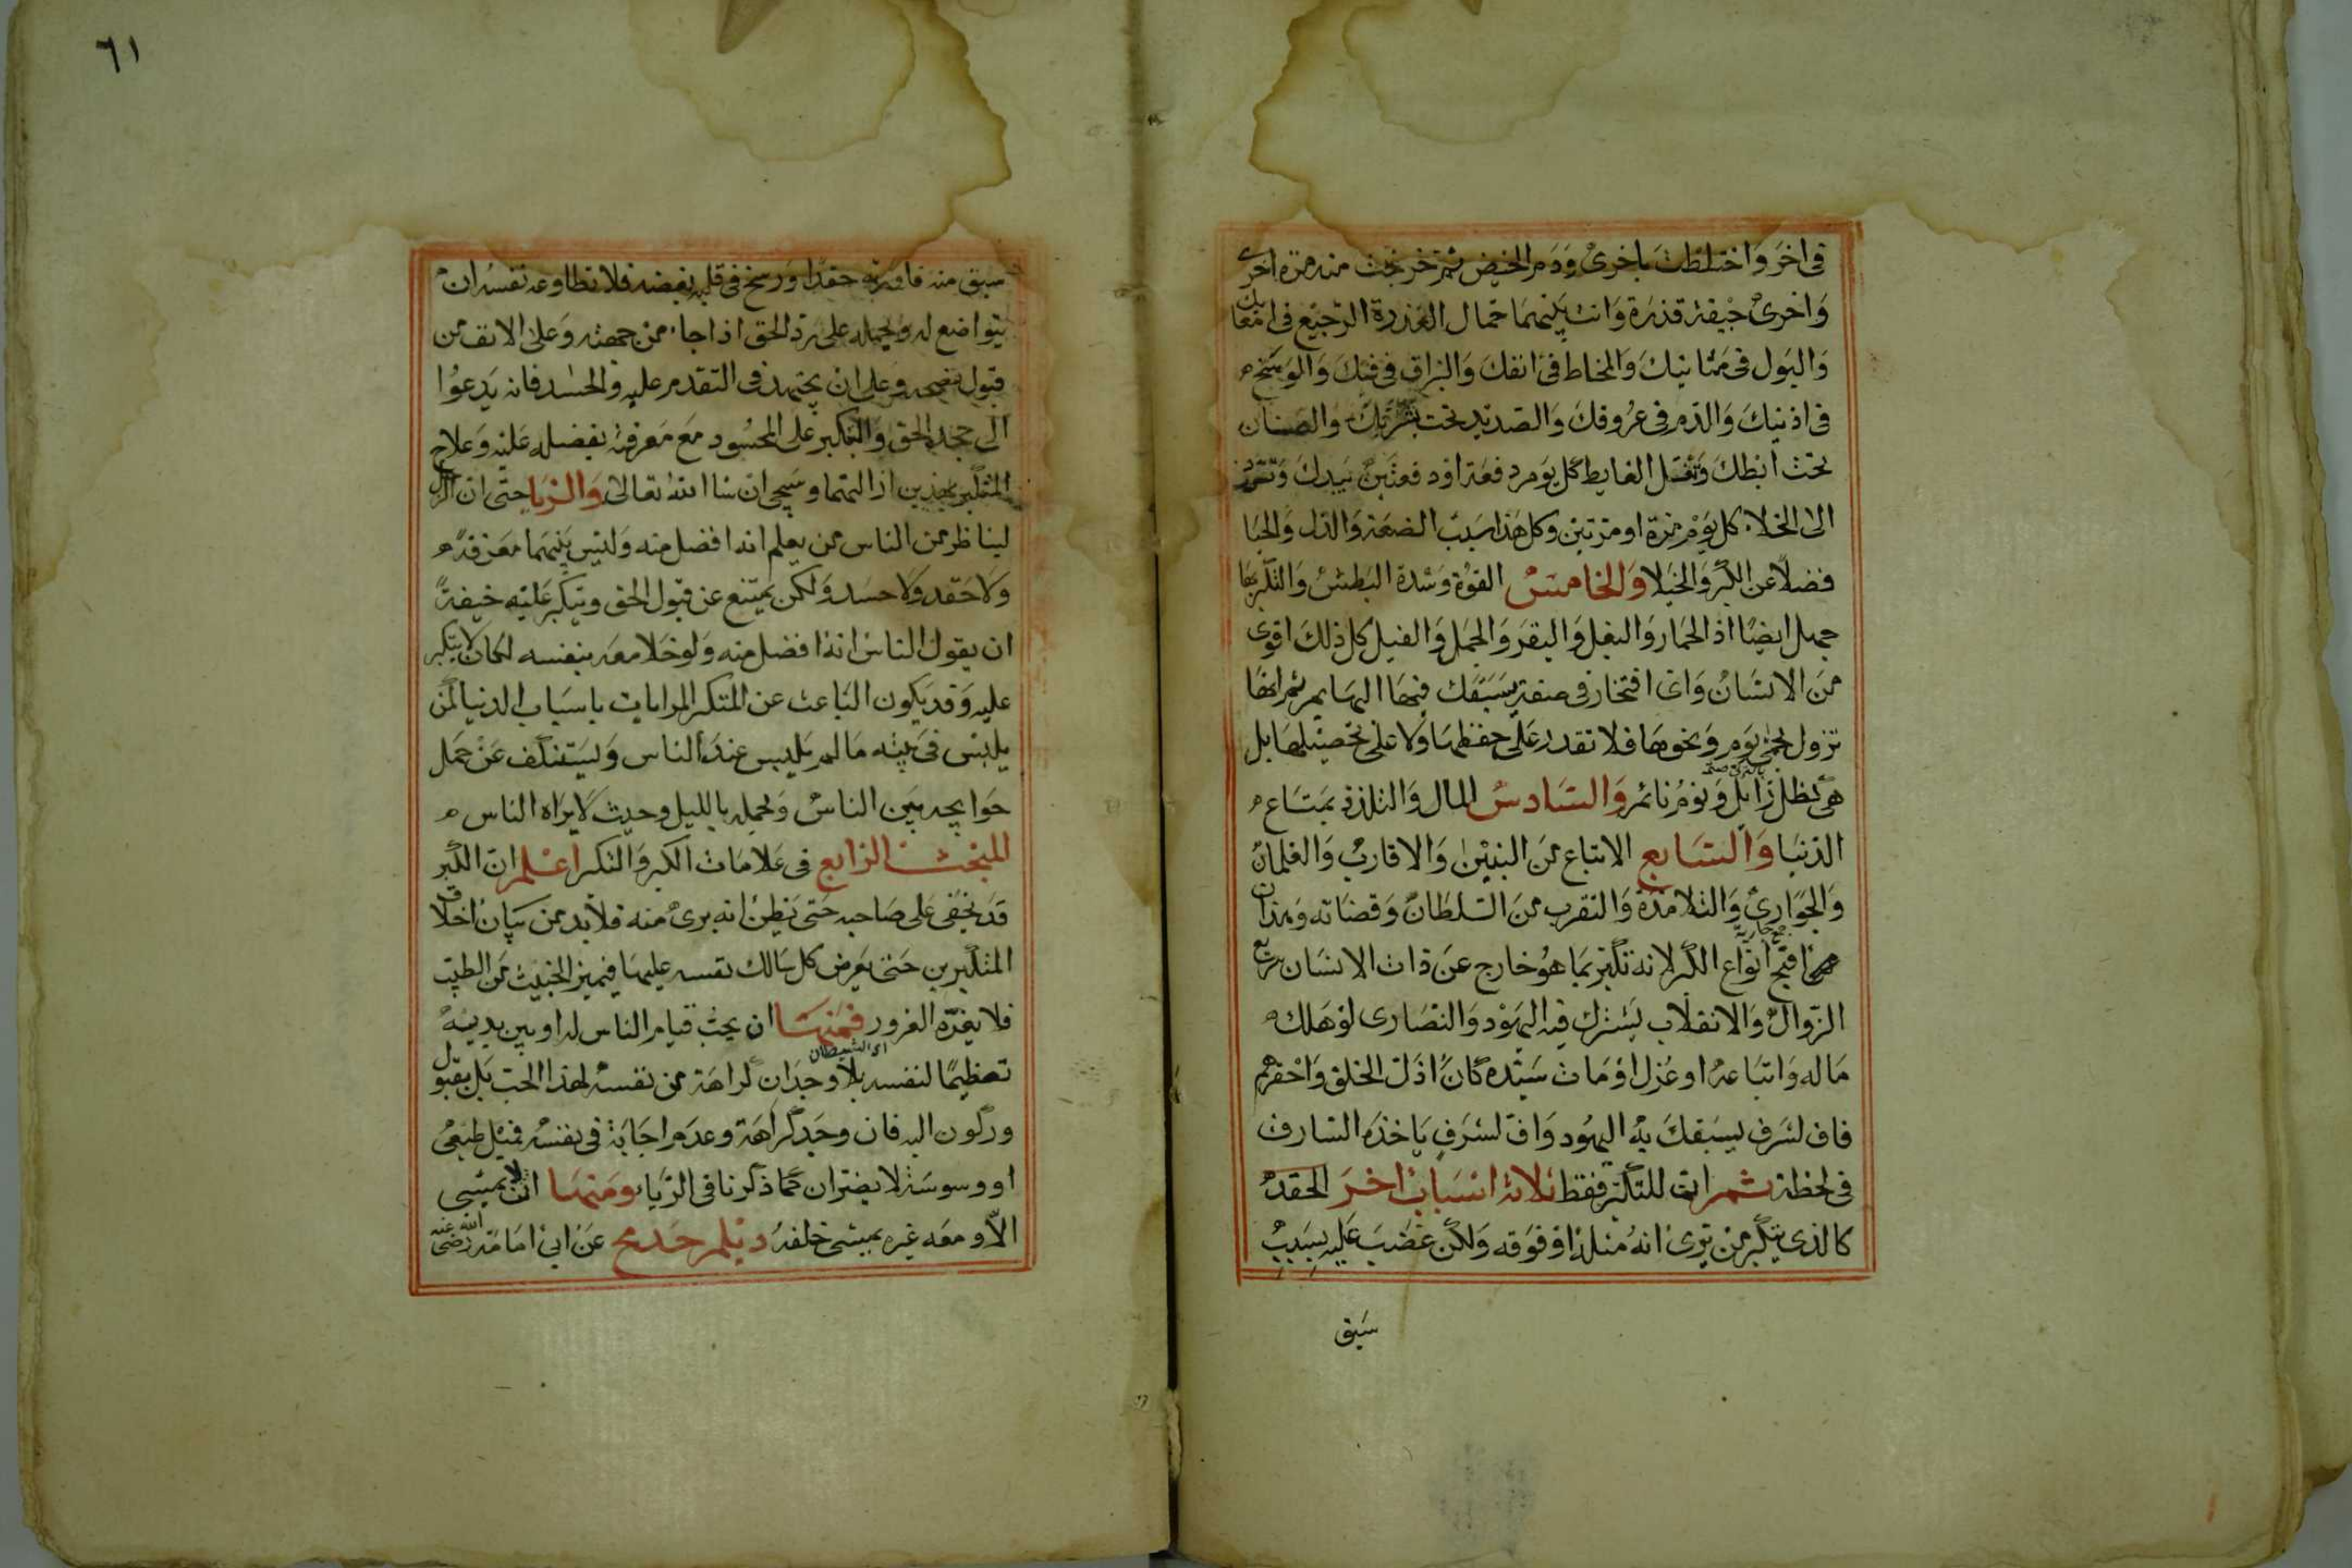 في اخر واختلطت باخرى ودم الحيض ثم خرجت منه مرة اخرى
واخرى جيفة قذرة وانت بينهما حمال العذرة الرجيع في امعائك
والبول في مثانتك والمخاط في انفك والبزاق في فيك والوسخ
في اذنيك والدم في عروقك والصديد تحت بشرتك والصنان
تحت ابطك وتغسل الغايط كل يوم دفعة او دفعتين بيدك وتتردد
الى الخلاء كل يوم مرة او مرتين وكل هذا سبب الضعة والذل والحيا
فضلا عن الكبر والخيلا والخامس القوة وشدة البطش والتكبر بها
جهل ايضا اذ الحمار والبغل والبقر والجمل والفيل كل ذلك اقوى
من الانسان واى افتخار في صفة يسبقك فيها البهايم ثم انها
تزول بحمى يوم ونحوها فلا تقدر على حفظها ولا على تحصيلها بل
هي كظل زايل ونوم نائم والسادس المال والتلذذ بمتاع
الدنيا والسابع الاتباع من البنين والاقارب والغلمان
والجوارى والتلامذة والتقرب من السلطان وقضاته وهذان
جمع جارية
اقبح انواع الكبر لانه تكبر بما هو خارج عن ذات الانسان سريع
الزوال والانقلاب يشترك فيه اليهود والنصارى لو هلك
ماله واتباعه او عزل او مات سيده كان اذل الخلق واحقرهم
فاف لشرف يسبقك به اليهود واف لشرف ياخذه السارق
في لحظة ثم ان للتكبر فقط ثلاثة اسباب اخر الحقد
كالذى يتكبر من يرى انه مثله او فوقه ولكن غضب عليه بسبب
سبق
٦١
سبق منه فاورثه حقدا ورسخ في قلبه بغضه فلا تطاوعه نفسه ان
يتواضع له ويحمله على رد الحق اذا جاء من جهته وعلى الانف من
قبول نصحه وعلى ان يجتهد في التقدم عليه والحسد فانه يدعوا
الى جحد الحق والتكبر على المحسود مع معرفته بفضله عليه وعلاج
المتكبر بهذين ازالتهما وسيجي ان شا الله تعالى والريا حتى ان الرجل
ليناظر من الناس من يعلم انه افضل منه وليس بينهما معرفة
ولا حقد ولا حسد ولكن يمتنع عن قبول الحق ويتكبر عليه خيفة
ان يقول الناس انه افضل منه ولو خلا معه بنفسه لكان لا يتكبر
عليه وقد يكون الباعث عن المتكبر المراياة باسباب الدنيا كمن
يلبس في بيته ما لم يلبس عند الناس ويستنكف عن حمل
حوايجه بين الناس ويحمله بالليل وحيث لا يراه الناس
المبحث الرابع في علامات الكبر والتكبر اعلم ان الكبر
قد يخفى على صاحبه حتى يظن انه برئ منه فلا بد من بيان اخلاق
المتكبرين حتى يعرض كل سالك نفسه عليها فيميز الخبيث من الطيب
فلا يغره الغرور فمنها ان يحب قيام الناس له او بين يديه
اى الشيطان
تعظيما لنفسه بلا وجدان كراهة من نفسه لهذا الحب بل بقبول
وركون اليه فان وجد كراهة وعدم اجابة في نفسه فميل طبعى
او وسوسة لا يضران كما ذكرنا في الريا ومنها ان لا يمشى
الا ومعه غيره يمشى خلفه ديلم حد مج عن ابى امامة رضى الله عنه